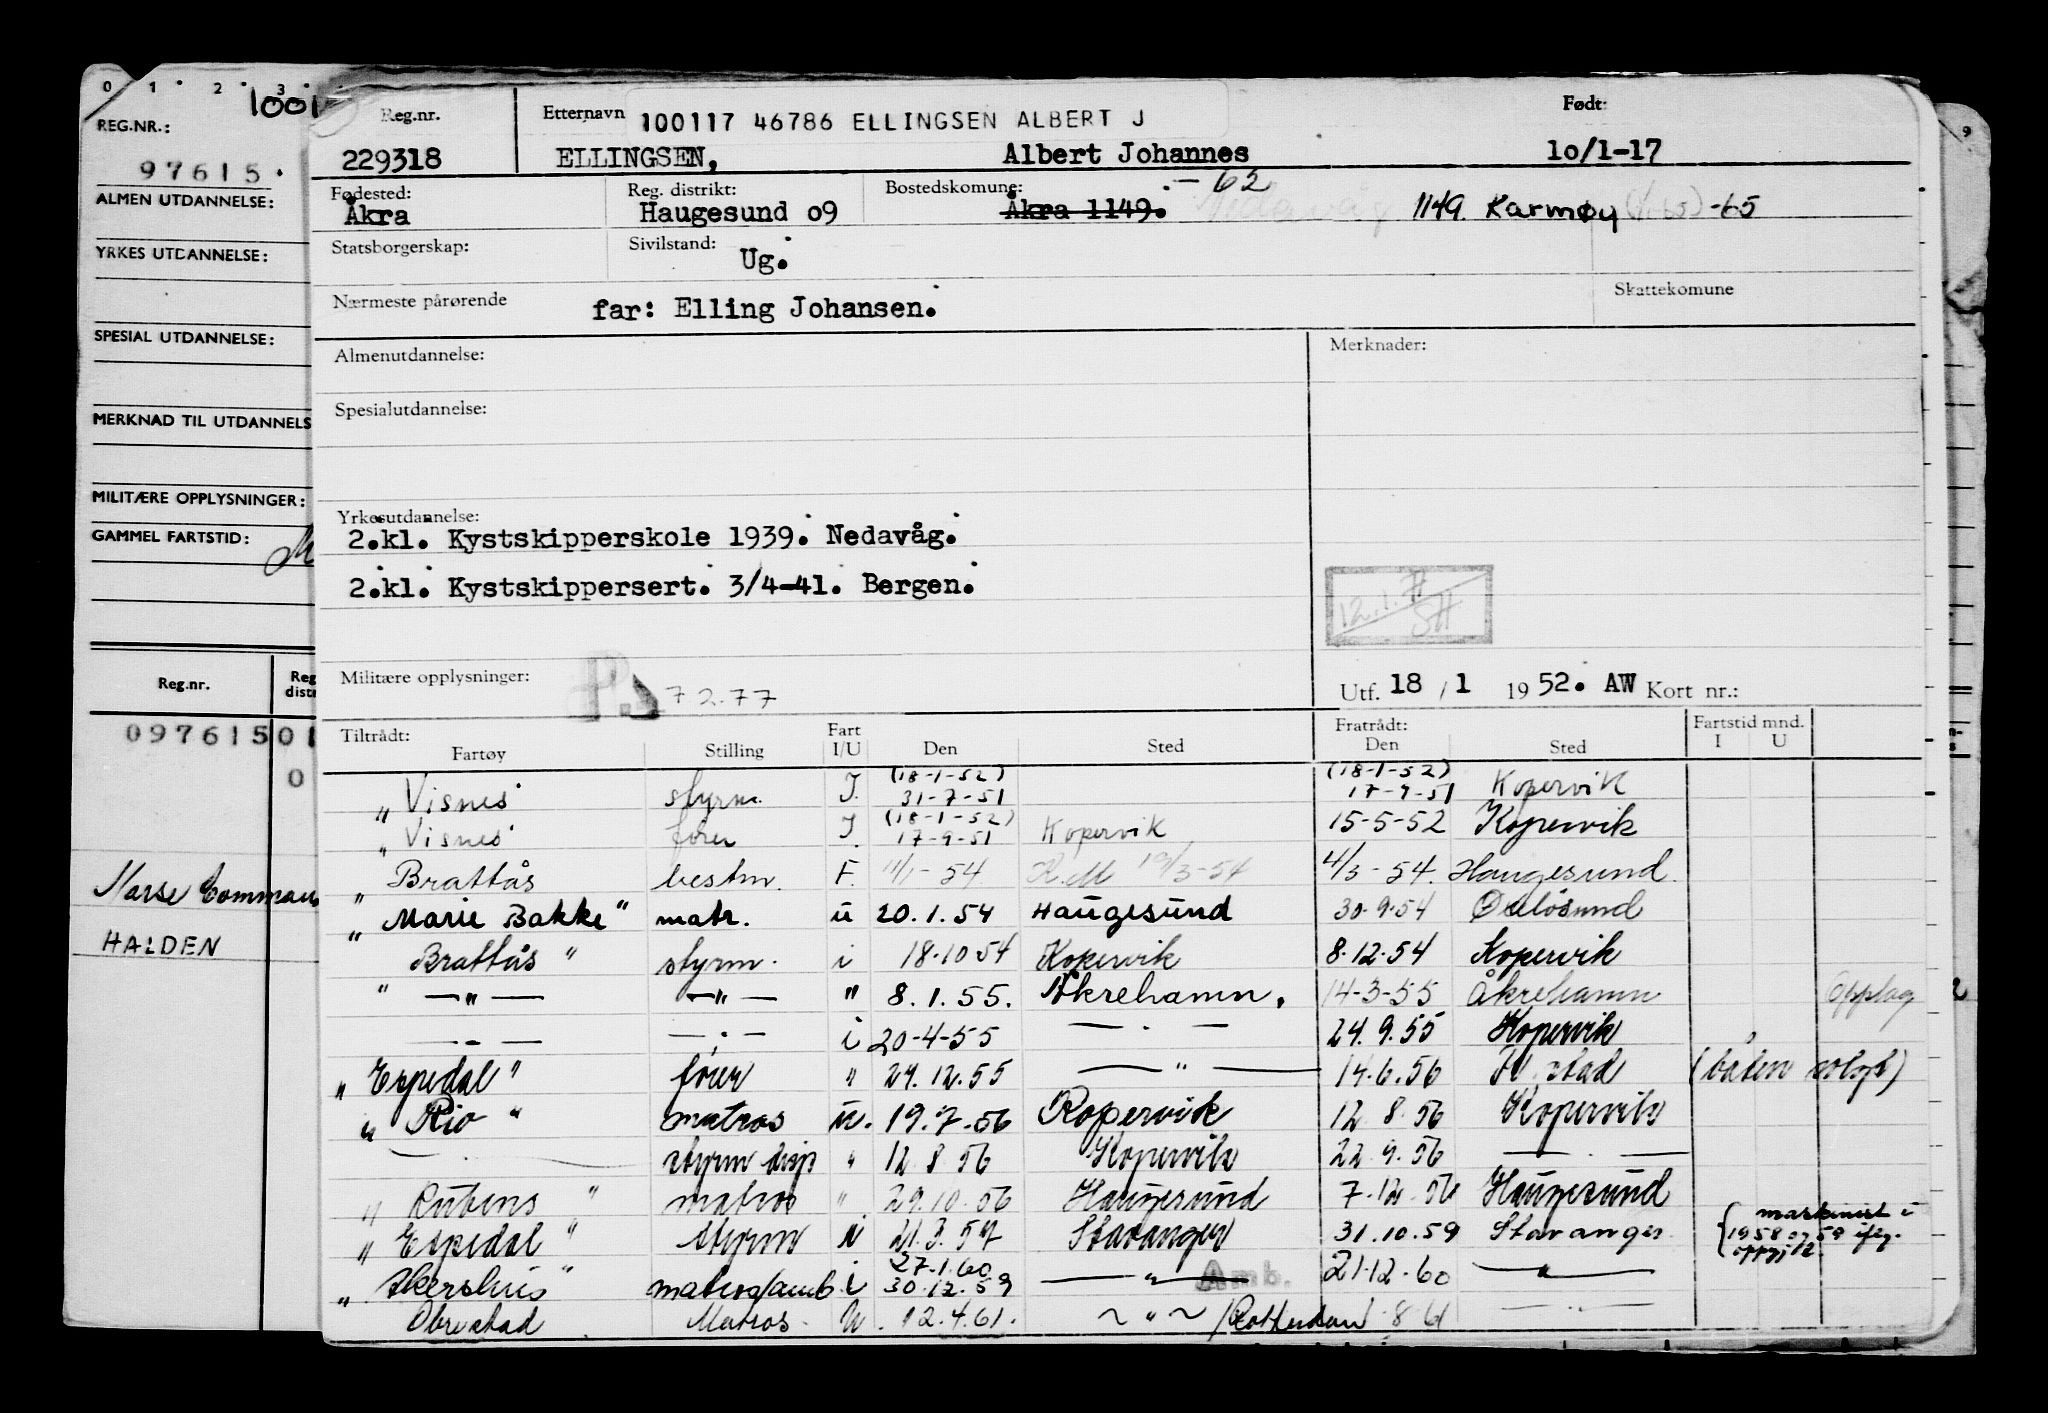 0 1 2 3
1001
REG.NR.:
97615.
ALMEN UTDANNELSE:
YRKES UTDANNELSE:
SPESIAL UTDANNELSE:
MERKNAD TIL UTDANNELS
MILITÆRE OPPLYSNINGER:
GAMMEL FARTSTID:
Reg.nr. Reg distr
097615 01
0
HALDEN
Reg.nr. Etternavn 100117 46786 ELLINGSEN ALBERT J Født:
229318 ELLINGSEN, Albert Johannes 10/1-17
Fødested: Reg. distrikt: Bostedskomune: - 62
Åkra Haugesund 09 Åkra 1149. 1149. Karmøy (1/1-65) -65
Statsborgerskap: Sivilstand: Ug.
Nærmeste pårørende far: Elling Johansen. Skattekomune
Almenutdannelse: Merknader:
Spesialutdannelse:
Yrkesutdannelse:
2.kl. Kystskipperskole 1939. Nedavåg.
2.kl. Kystskippersert. 3/4-41. Bergen.
12.1.71 SH
Militære opplysninger: P. 7.2.77 Utf. 18/1 1952. AW Kort nr.:
Tiltrådt: Fratrådt: Fartstid mnd.
Fartøy Stilling Fart I/U Den Sted Den Sted I U
"Visnes styrm. I. (18-1-52) 31-7-51 (18-1-52) 17-9-51 Kopervik
"Visnes fører I (18-1-52) 17-9-51 Kopervik 15-5-52 Kopervik
" Brattås bestm. F. 11/1-54 4/3-54. Haugesund
" Marie Bakke" matr. u 20.1.54 Haugesund 30-9-54 Oxelösund
Brattås " styrm. i 18-10-54 Kopervik 8.12.54 Kopervik
" —"— —"— " 8.1.55. Åkrehamn. 14-3-55 Åkrehamn Opplag
—"— —"— i 20-4-55 —"— 24.9.55 Kopervik
" Espedal" fører " 29.12.55 —"— 14.6.56 (båten solgt)
" Rio " matros u. 19.7.56 Kopervik 12.8.56 Kopervik
—"— styrm disp " 12.8.56 Kopervik 22.9.56 —"—
" Rubens " matros " 29.10.56 Haugesund 7-12-56 Haugesund
" Espedal " styrm i 21.3.57 Stavanger 31.10.59 Stavanger { maskinist i 1958 og 59 iflg.
" Akershus" matros/amb. i 27.1.60 30.12.59 —"— Amb. 21-12-60 —"—
Obrestad Matros. U. 12.4.61. ~"~ /Rotterdam 8 61 —"—